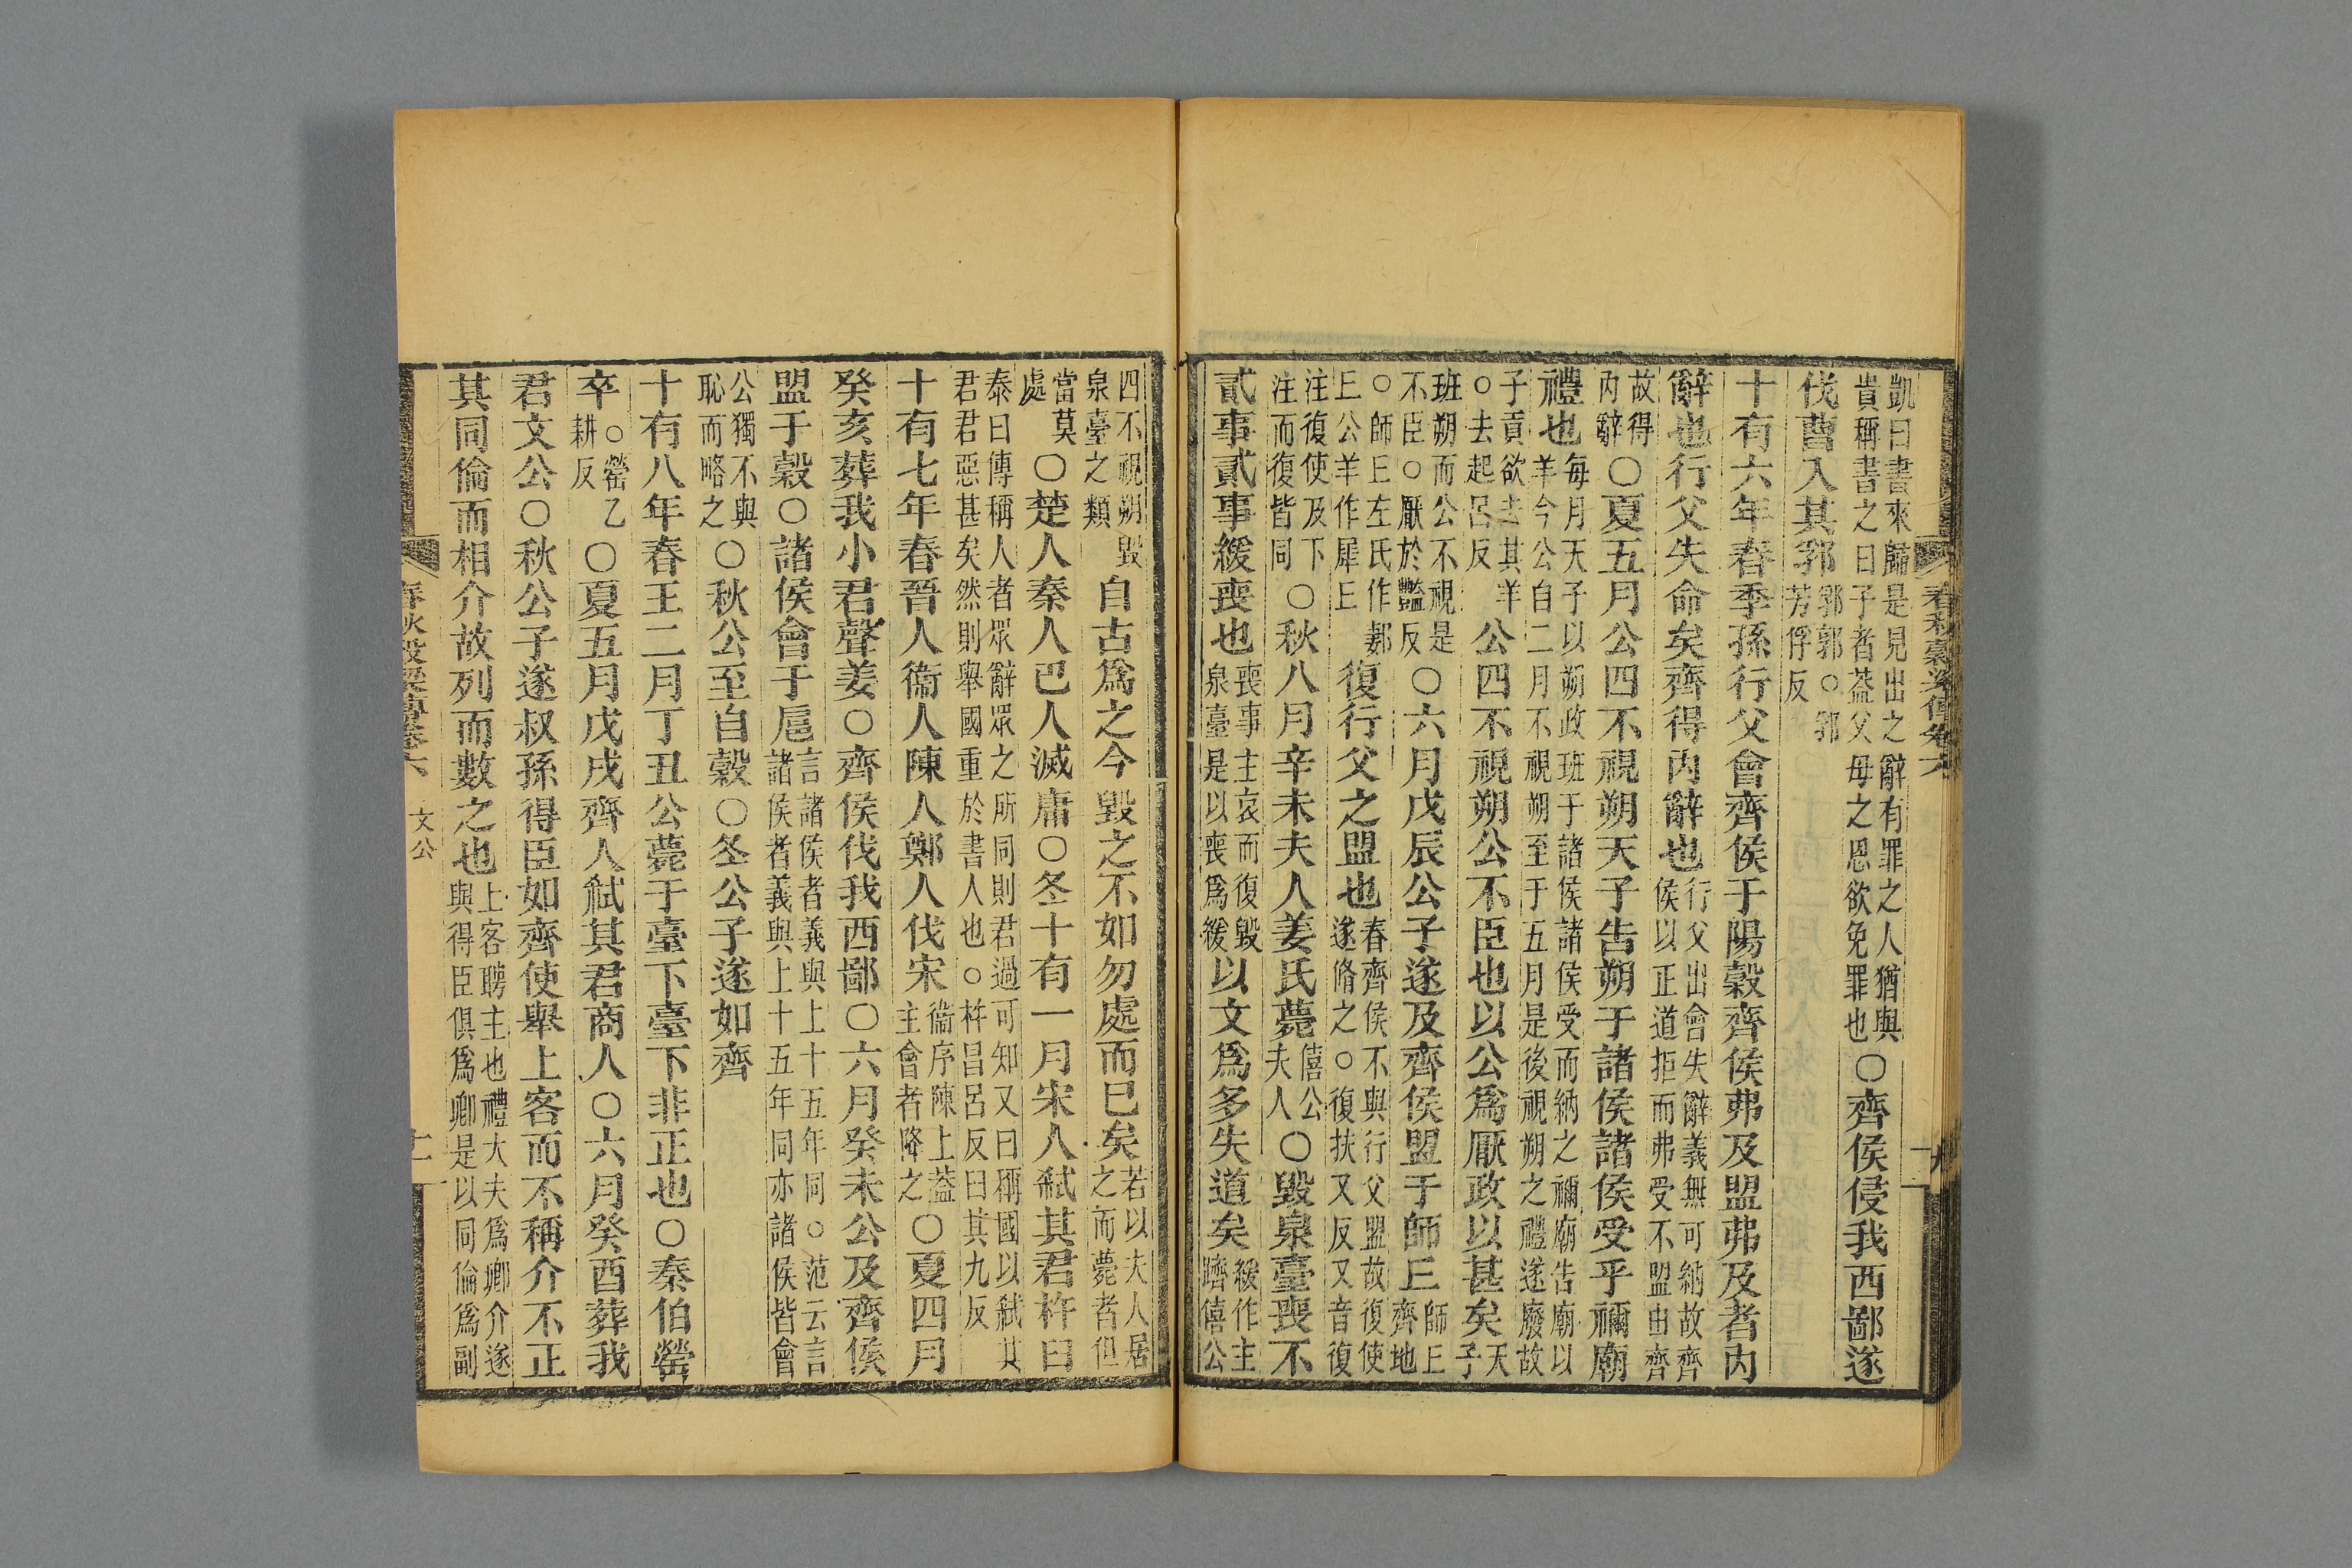 凱曰書來歸是見出之辭有罪之人猶與
貴稱書之曰子者葢父母之恩欲免罪也○齊侯侵我西鄙遂
伐曹入其郛郛郭○郛芳俘反
十有六年春季孫行父會齊侯于陽穀齊侯弗及盟弗及者內
辭也行父失命矣齊得內辭也行父出會失辭義無可納故齊侯以正道拒而弗受不盟由齊
故得內辭○夏五月公四不視朔天子告朔于諸侯諸侯受乎禰廟
禮也每月天子以朔政班于諸侯諸侯受而納之禰廟告廟以羊今公自二月不視朔至于五月是後視朔之禮遂廢故
子貢欲去其羊○去起呂反公四不視朔公不臣也以公爲厭政以甚矣天子
班朔而公不視是不臣○厭於豔反○六月戊辰公子遂及齊侯盟于師丘師丘齊地
○師丘左氏作郪丘公羊作犀丘復行父之盟也春齊侯不與行父盟故復使遂脩之○復扶又反又音復
注復使及下注而復皆同○秋八月辛未夫人姜氏薨僖公夫人○毀泉臺喪不
貳事貳事緩喪也喪事主哀而復毀泉臺是以喪爲緩以文爲多失道矣緩作主躋僖公
四不視朔毀泉臺之類自古爲之今毀之不如勿處而已矣若以夫人居之而薨者但
當莫處○楚人秦人巴人滅庸○冬十有一月宋人弒其君杵臼
泰曰傳稱人者眾辭眾之所同則君過可知又曰稱國以弒其
君君惡甚矣然則舉國重於書人也○杵昌呂反臼其九反
十有七年春晉人衞人陳人鄭人伐宋衞序陳上葢主會者降之○夏四月
癸亥葬我小君聲姜○齊侯伐我西鄙○六月癸未公及齊侯
盟于穀○諸侯會于扈言諸侯者義與上十五年同○范云言諸侯者義與上十五年同亦諸侯皆會
公獨不與恥而略之○秋公至自穀○冬公子遂如齊
十有八年春王二月丁丑公薨于臺下臺下非正也○秦伯罃
卒○罃乙耕反○夏五月戊戌齊人弒其君商人○六月癸酉葬我
君文公○秋公子遂叔孫得臣如齊使舉上客而不稱介不正
其同倫而相介故列而數之也上客聘主也禮大夫爲卿介遂與得臣俱爲卿是以同倫爲副
春秋穀梁傳卷六 文公 十一